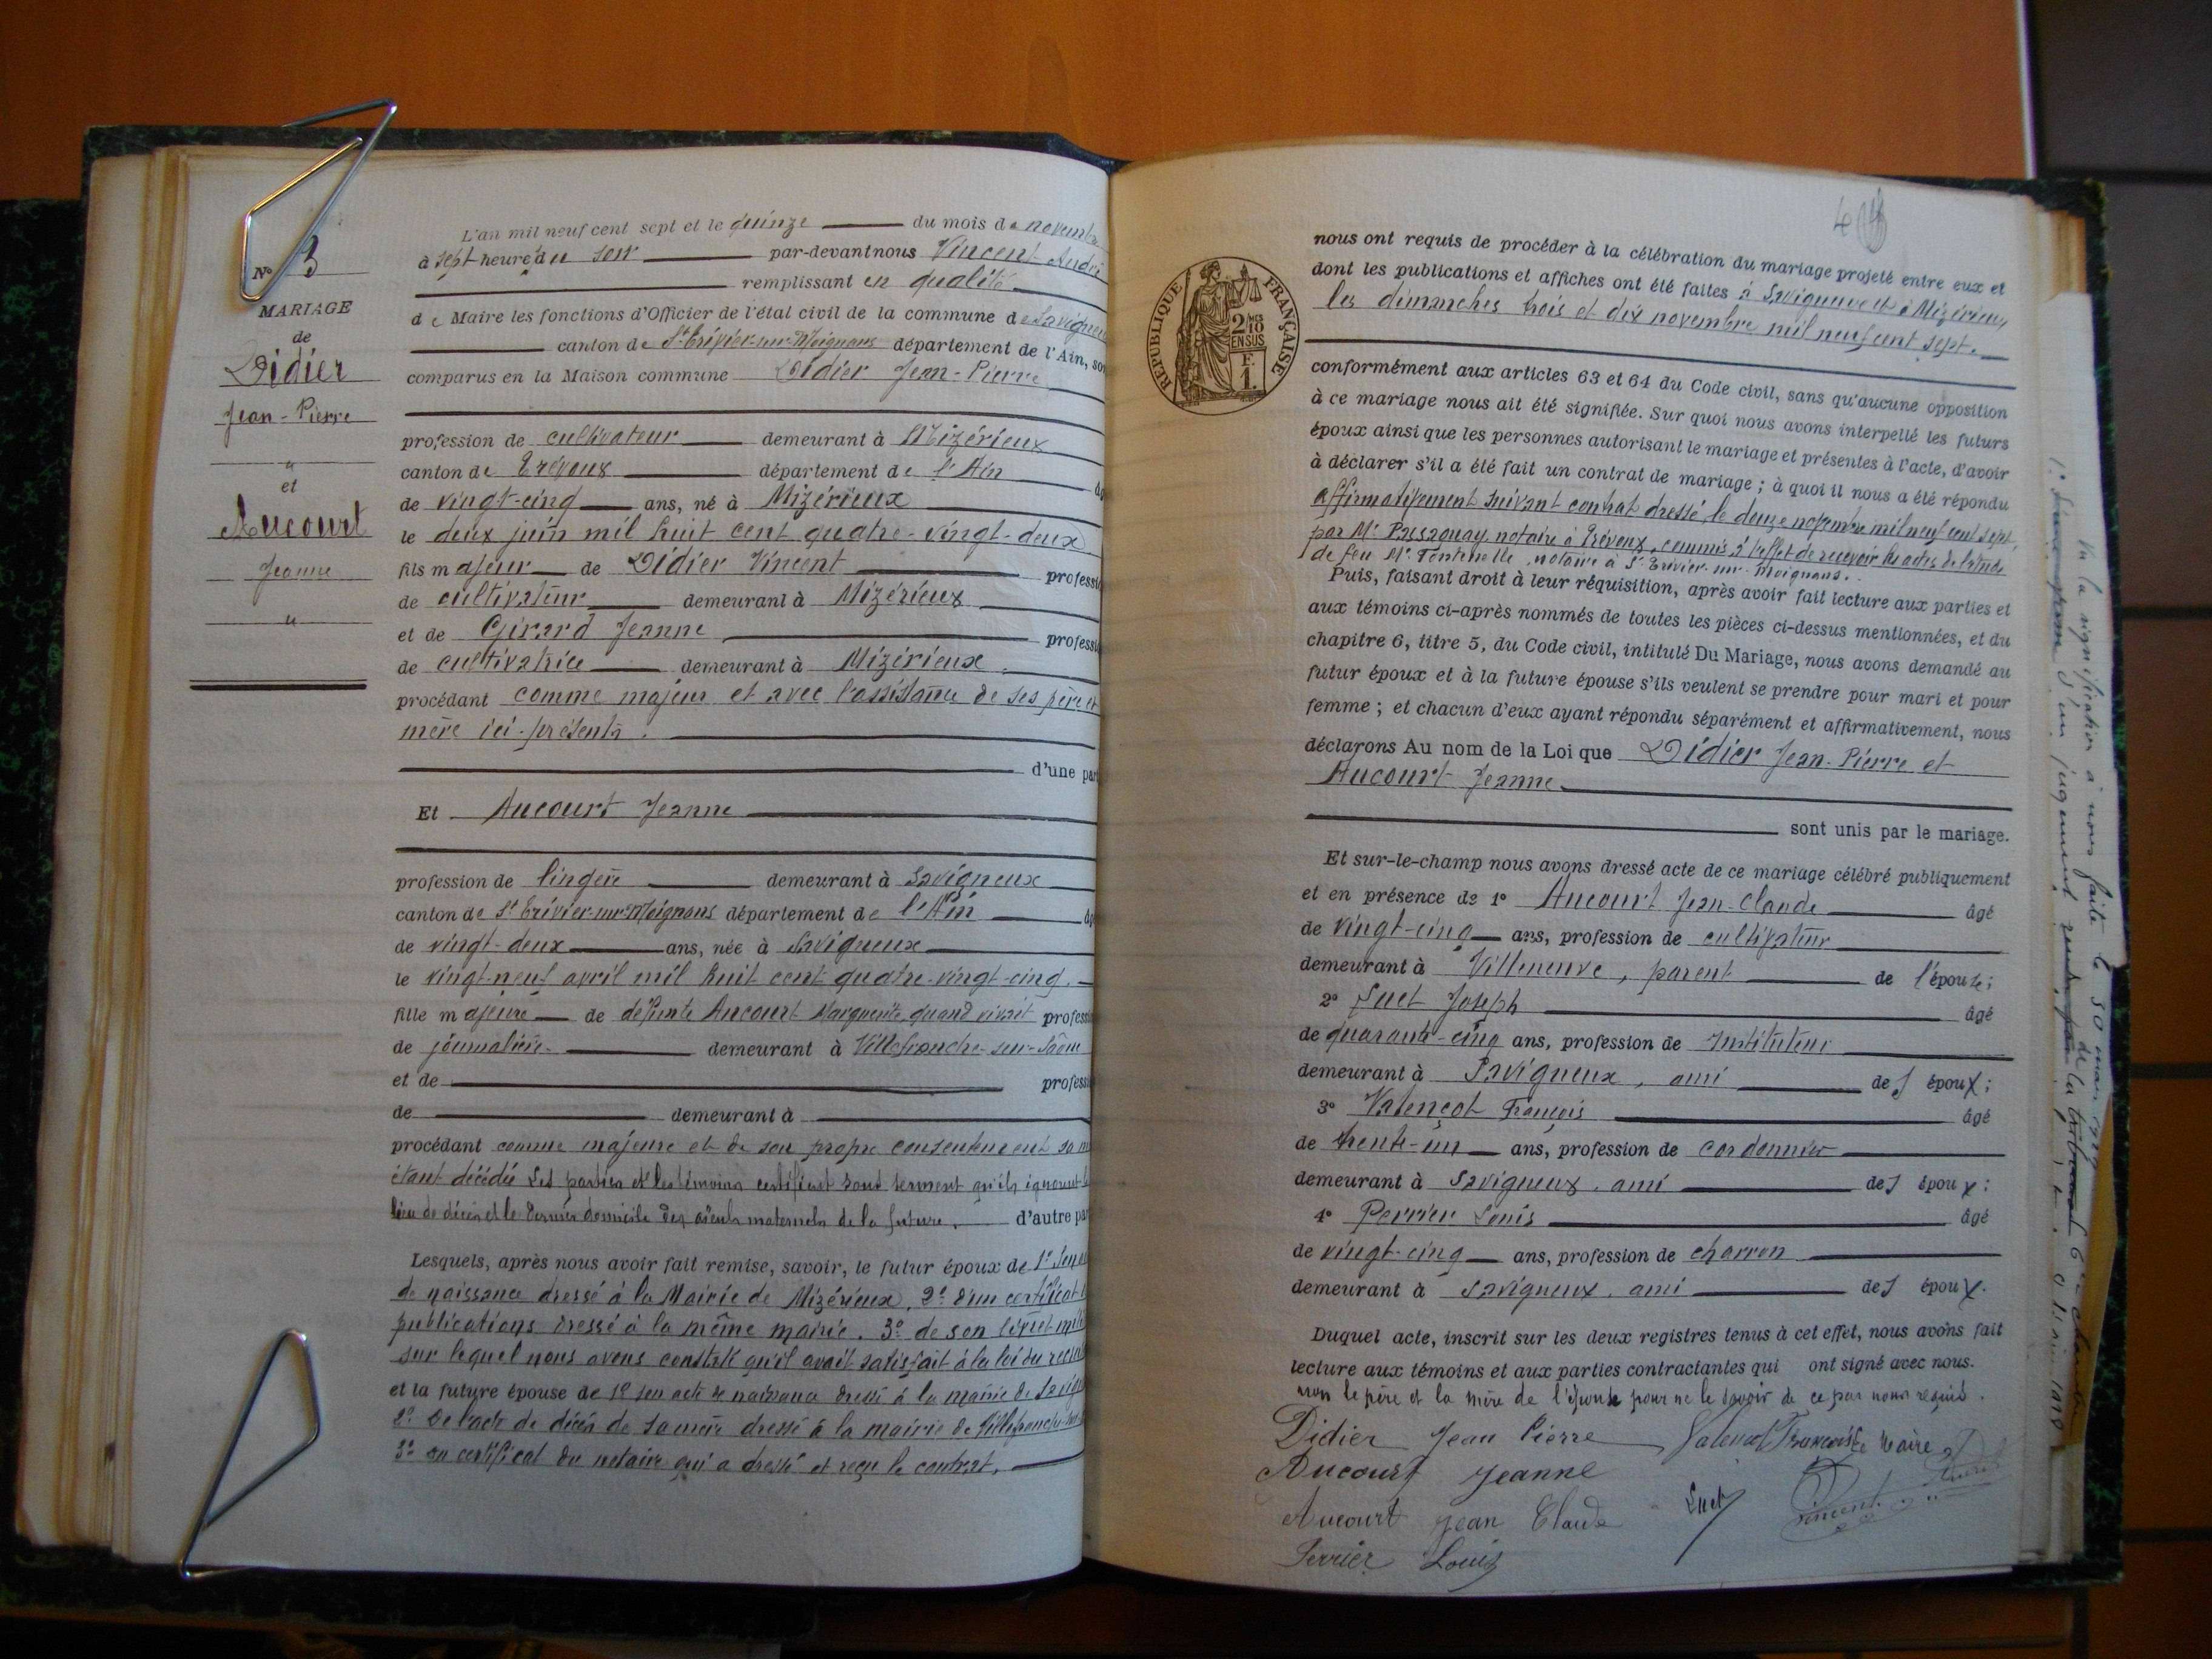 N° 3
MARIAGE
de
Didier
Jean-Pierre
"
et
Aucourt
Jeanne
"
L'an mil neuf cent sept et le quinze du mois de novembre
à sept heure du soir par-devant nous Vincent André
remplissant en qualité
de Maire les fonctions d'Officier de l'état civil de la commune de Savigneux
canton de St Trivier-sur-Moignans département de l'Ain, son
comparus en la Maison commune Didier Jean-Pierre
profession de cultivateur demeurant à Mizérieux
canton de Trévoux département de l'Ain
de vingt-cinq ans, né à Mizérieux
le deux juin mil huit cent quatre-vingt-deux
fils majeur de Didier Vincent professi
de cultivateur demeurant à Mizérieux
et de Girard Jeanne professi
de cultivatrice demeurant à Mizérieux
procédant comme majeur et avec l'assistance de ses père et
mère ici-présents.
d'une par
Et Aucourt Jeanne
profession de lingère demeurant à Savigneux
canton de St Trivier-sur-Moignans département de l'Ain
de vingt-deux ans, née à Savigneux
le vingt-neuf avril mil huit cent quatre-vingt-cinq.
fille majeure de défunte Aucourt Marguerite quand vivait professi
de journalière demeurant à Villefranche-sur-Saône
et de professi
de demeurant à
procédant comme majeure et de son propre consentement sa m
étant décédée Les parties et les témoins certifient sous serment qu'ils ignorent le
lieu de décès et le dernier domicile des aïeuls maternels de la future. d'autre par
Lesquels, après nous avoir fait remise, savoir, le futur époux de 1°
de naissance dressé à la Mairie de Mizérieux, 2° d'un certificat
publications dressé à la même mairie. 3° de son livret
sur lequel nous avons constaté qu'il avait satisfait à la loi du
et la future épouse de 1° son acte de naissance dressé à la mairie de
2° de l'acte de décès de sa mère dressé à la mairie de
3° du certificat du notaire qui a dressé et reçu le contrat.
RÉPUBLIQUE FRANÇAISE
2/10
EN SUS
F.
1.
nous ont requis de procéder à la célébration du mariage projeté entre eux et
dont les publications et affiches ont été faites à Savigneux et à Mizérieux
les dimanches trois et dix novembre mil neuf cent sept.
conformément aux articles 63 et 64 du Code civil, sans qu'aucune opposition
à ce mariage nous ait été signifiée. Sur quoi nous avons interpellé les futurs
époux ainsi que les personnes autorisant le mariage et présentes à l'acte, d'avoir
à déclarer s'il a été fait un contrat de mariage ; à quoi il nous a été répondu
affirmativement suivant contrat dressé, le douze novembre mil neuf cent sept,
par Me notaire à Trévoux, commis à l'effet de recevoir les actes de l'étude
de feu Me Fontenelle, notaire à St Trivier-sur-Moignans.
Puis, faisant droit à leur réquisition, après avoir fait lecture aux parties et
aux témoins ci-après nommés de toutes les pièces ci-dessus mentionnées, et du
chapitre 6, titre 5, du Code civil, intitulé Du Mariage, nous avons demandé au
futur époux et à la future épouse s'ils veulent se prendre pour mari et pour
femme ; et chacun d'eux ayant répondu séparément et affirmativement, nous
déclarons Au nom de la Loi que Didier Jean-Pierre et
Aucourt Jeanne
sont unis par le mariage.
Et sur-le-champ nous avons dressé acte de ce mariage célébré publiquement
et en présence de 1° Aucourt Jean-Claude âgé
de vingt-cinq ans, profession de cultivateur
demeurant à Villeneuve, parent de l'épouse;
2° Suet Joseph âgé
de quarante-cinq ans, profession de Instituteur
demeurant à Savigneux, ami des époux;
3° Valençot François âgé
de trente-un ans, profession de cordonnier
demeurant à Savigneux, ami des époux;
4° Perrier Louis âgé
de vingt-cinq ans, profession de charron
demeurant à Savigneux, ami des époux.
Duquel acte, inscrit sur les deux registres tenus à cet effet, nous avons fait
lecture aux témoins et aux parties contractantes qui ont signé avec nous.
non le père et la mère de l'époux pour ne le savoir de ce par nous requis.
Didier Jean Pierre Valençot François Le Maire
Aucourt Jeanne
Aucourt Jean Claude Suet Vincent André
Perrier Louis
Vu la signification à nous faite le 30 mai